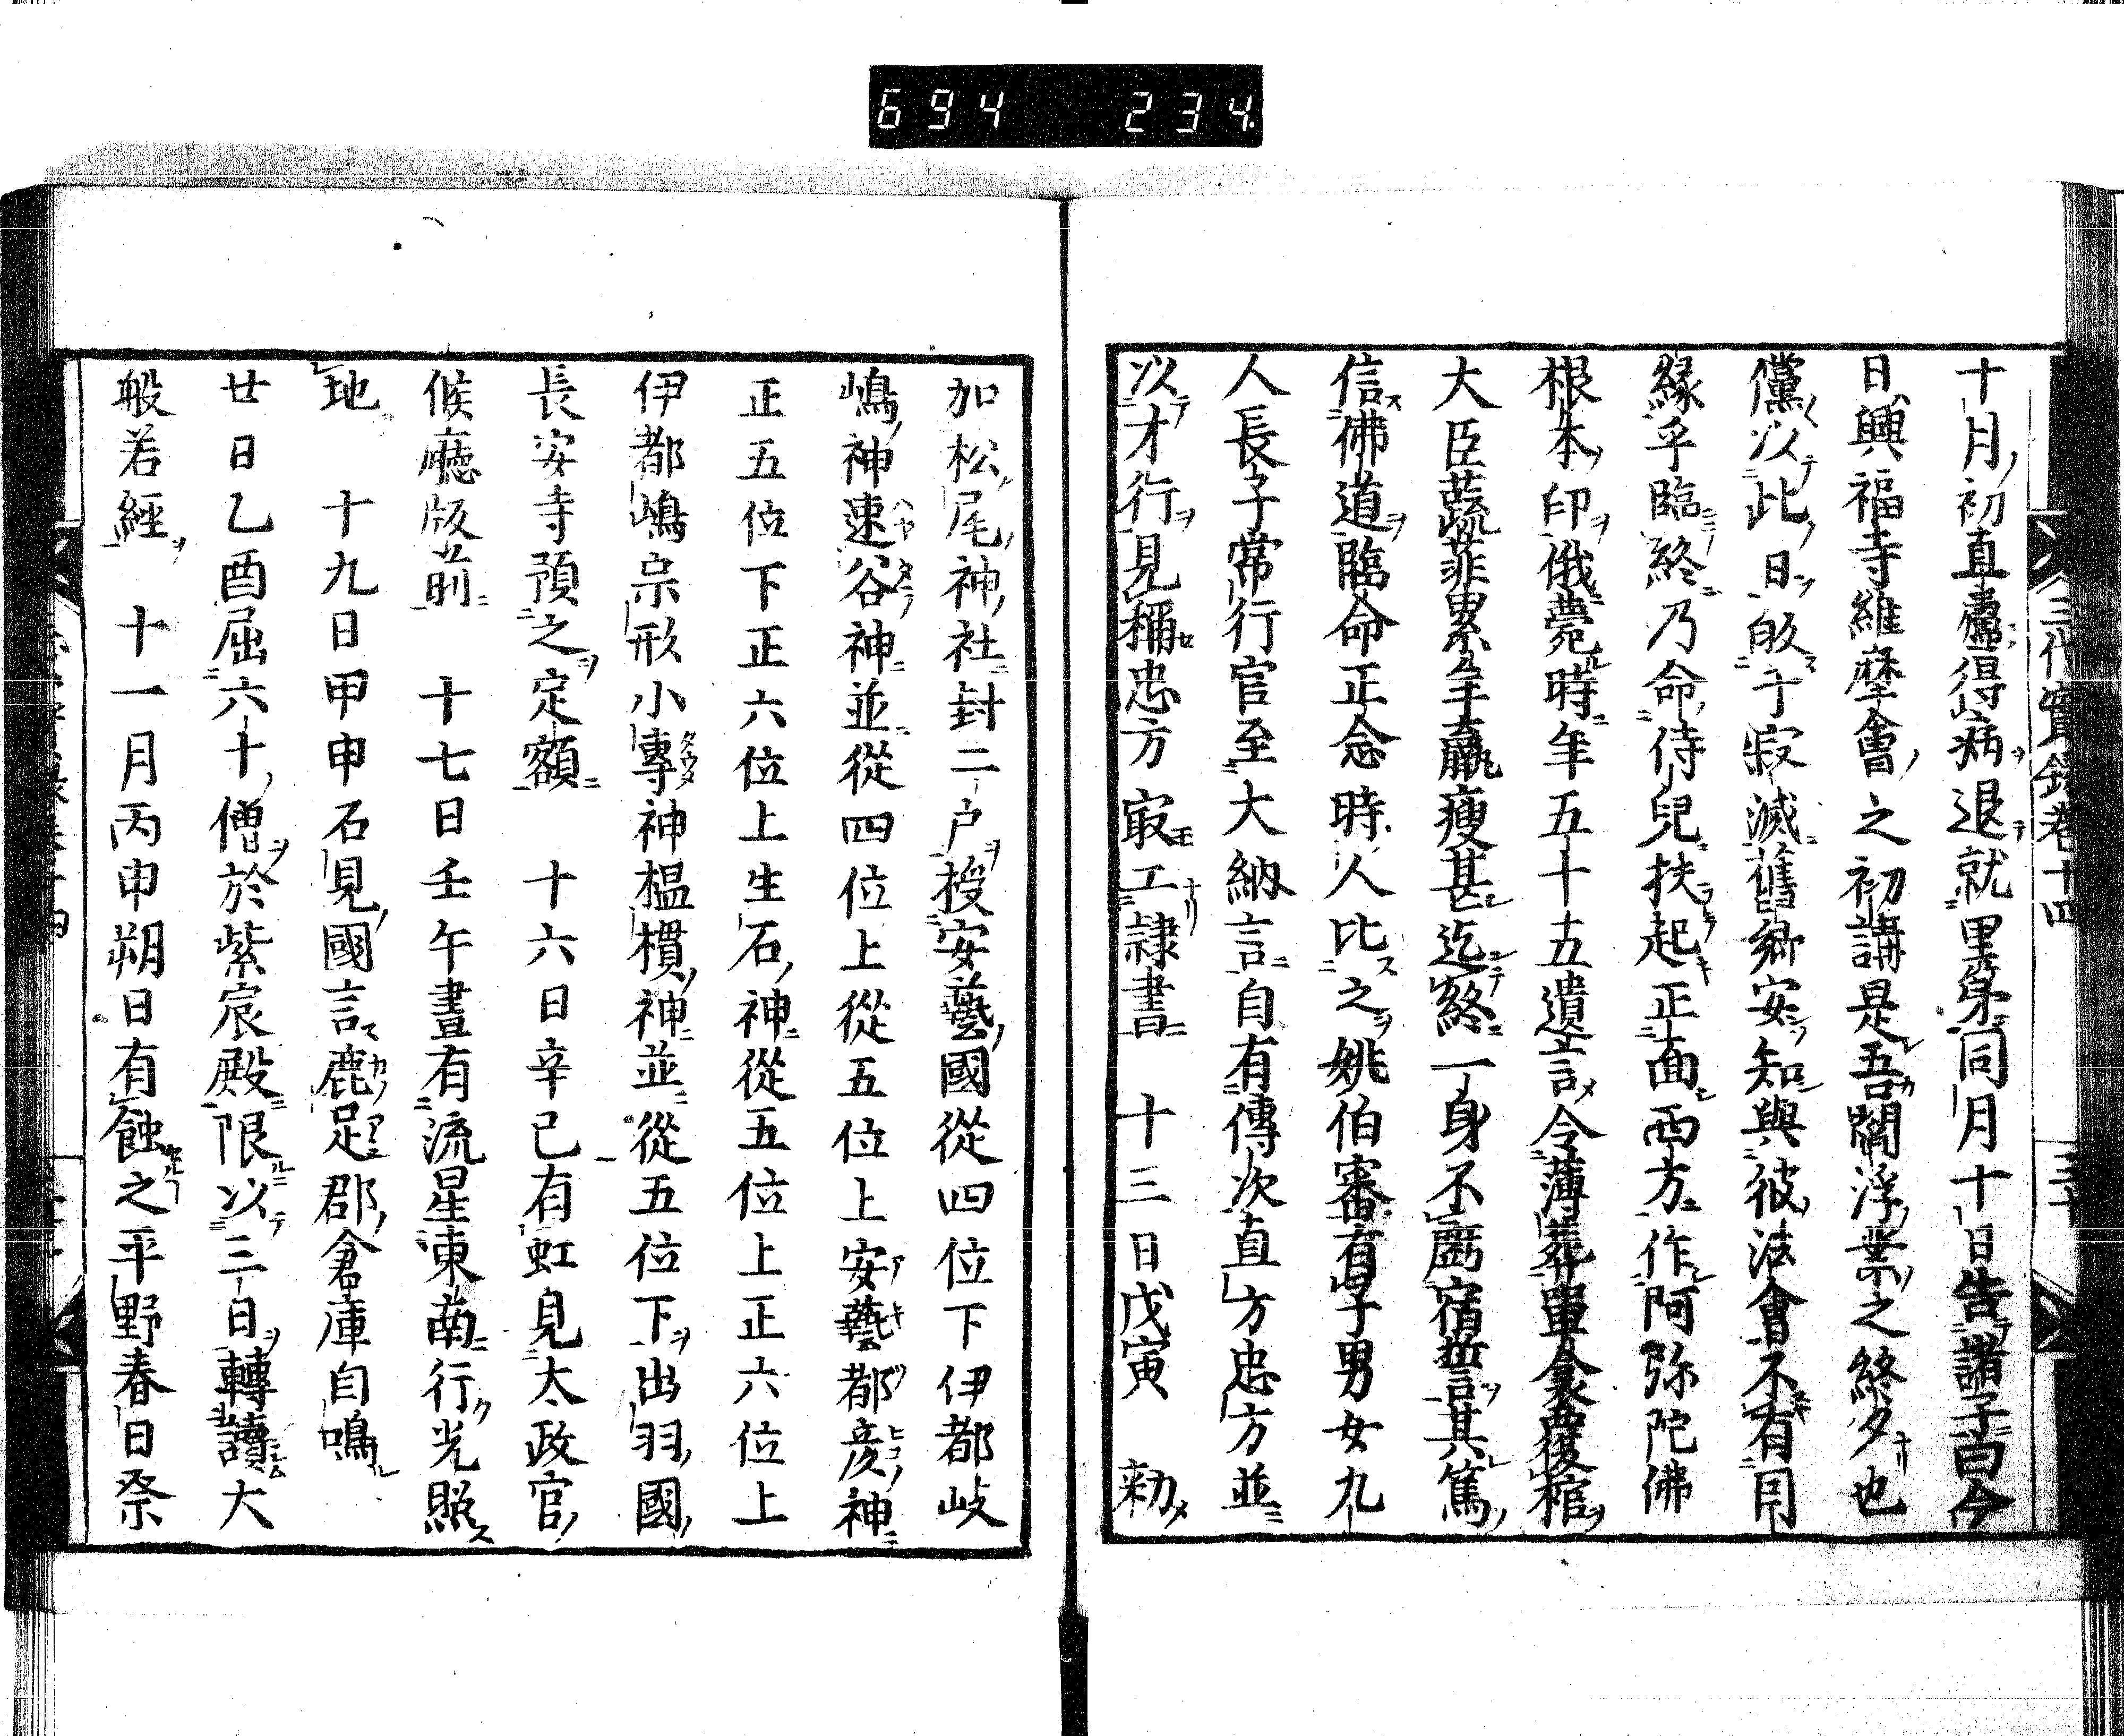 694 234
三代實録卷十四
十月初直廬得病退就里第同月十日告諸子曰今
日興福寺維摩會之初講是吾閻浮業之終夕也
儻以此日皈于寂滅舊鄉安知與彼法會不有因
縁乎臨終乃命侍兒扶起正面西方作阿弥陀佛
根本印俄薨時年五十五遺言令薄葬單衾覆棺
大臣蔬菲累年羸瘦甚迄終一身不虧宿誓其篤
信佛道臨命正念時人比之姚伯審有子男女九
人長子常行官至大納言自有傳次直方忠方並
以才行見稱忠方㝡工隷書　十三日戊寅　勑
加松尾神社封二戸授安藝國從四位下伊都岐
嶋神速谷神並從四位上從五位上安藝都彦神
正五位下正六位上生石神從五位上正六位上
伊都嶋宗形小專神榲樻神並從五位下出羽國
長安寺預之定額　十六日辛已有虹見太政官
候廳版前　十七日壬午晝有流星東南行光照
地　十九日甲申石見國言鹿足郡倉庫自鳴
廿日乙酉屈六十僧於紫宸殿限以三日轉讀大
般若經　十一月丙申朔日有蝕之平野春日祭